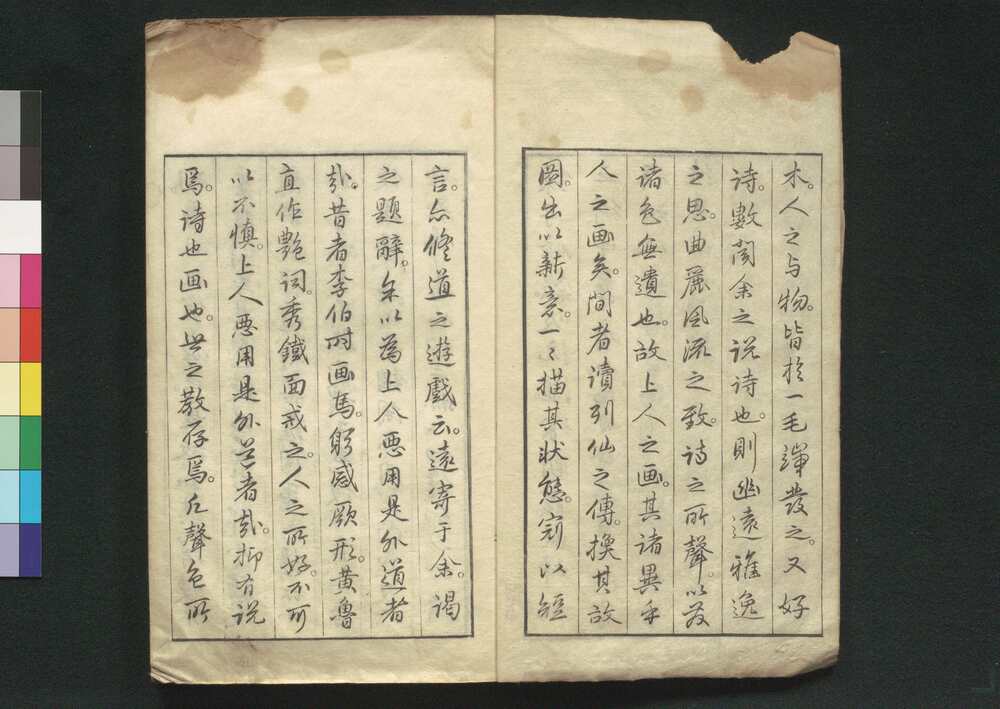 木。人之与物。皆於一毛端發之。又好
詩。數聞余之説詩也。則幽遠雅逸
之思。曲麗風流之致。詩之所聲。以為
諸色無遺也。故上人之画。其諸異乎
人之画矣。間者讀列仙之傳。換其故
圖。出以新意。一〻描其状態。 以短
言。亦修道之遊戲云。遠寄于余。謁
之題辭。余以為上人悪用是外道者
哉。昔者李伯時画馬。躬感厥形。黄魯
直作艶詞。秀鐵面戒之。人之所好。不可
以不慎。上人悪用是外道者哉。抑有説
焉。詩也画也。 之教存焉。 聲色所